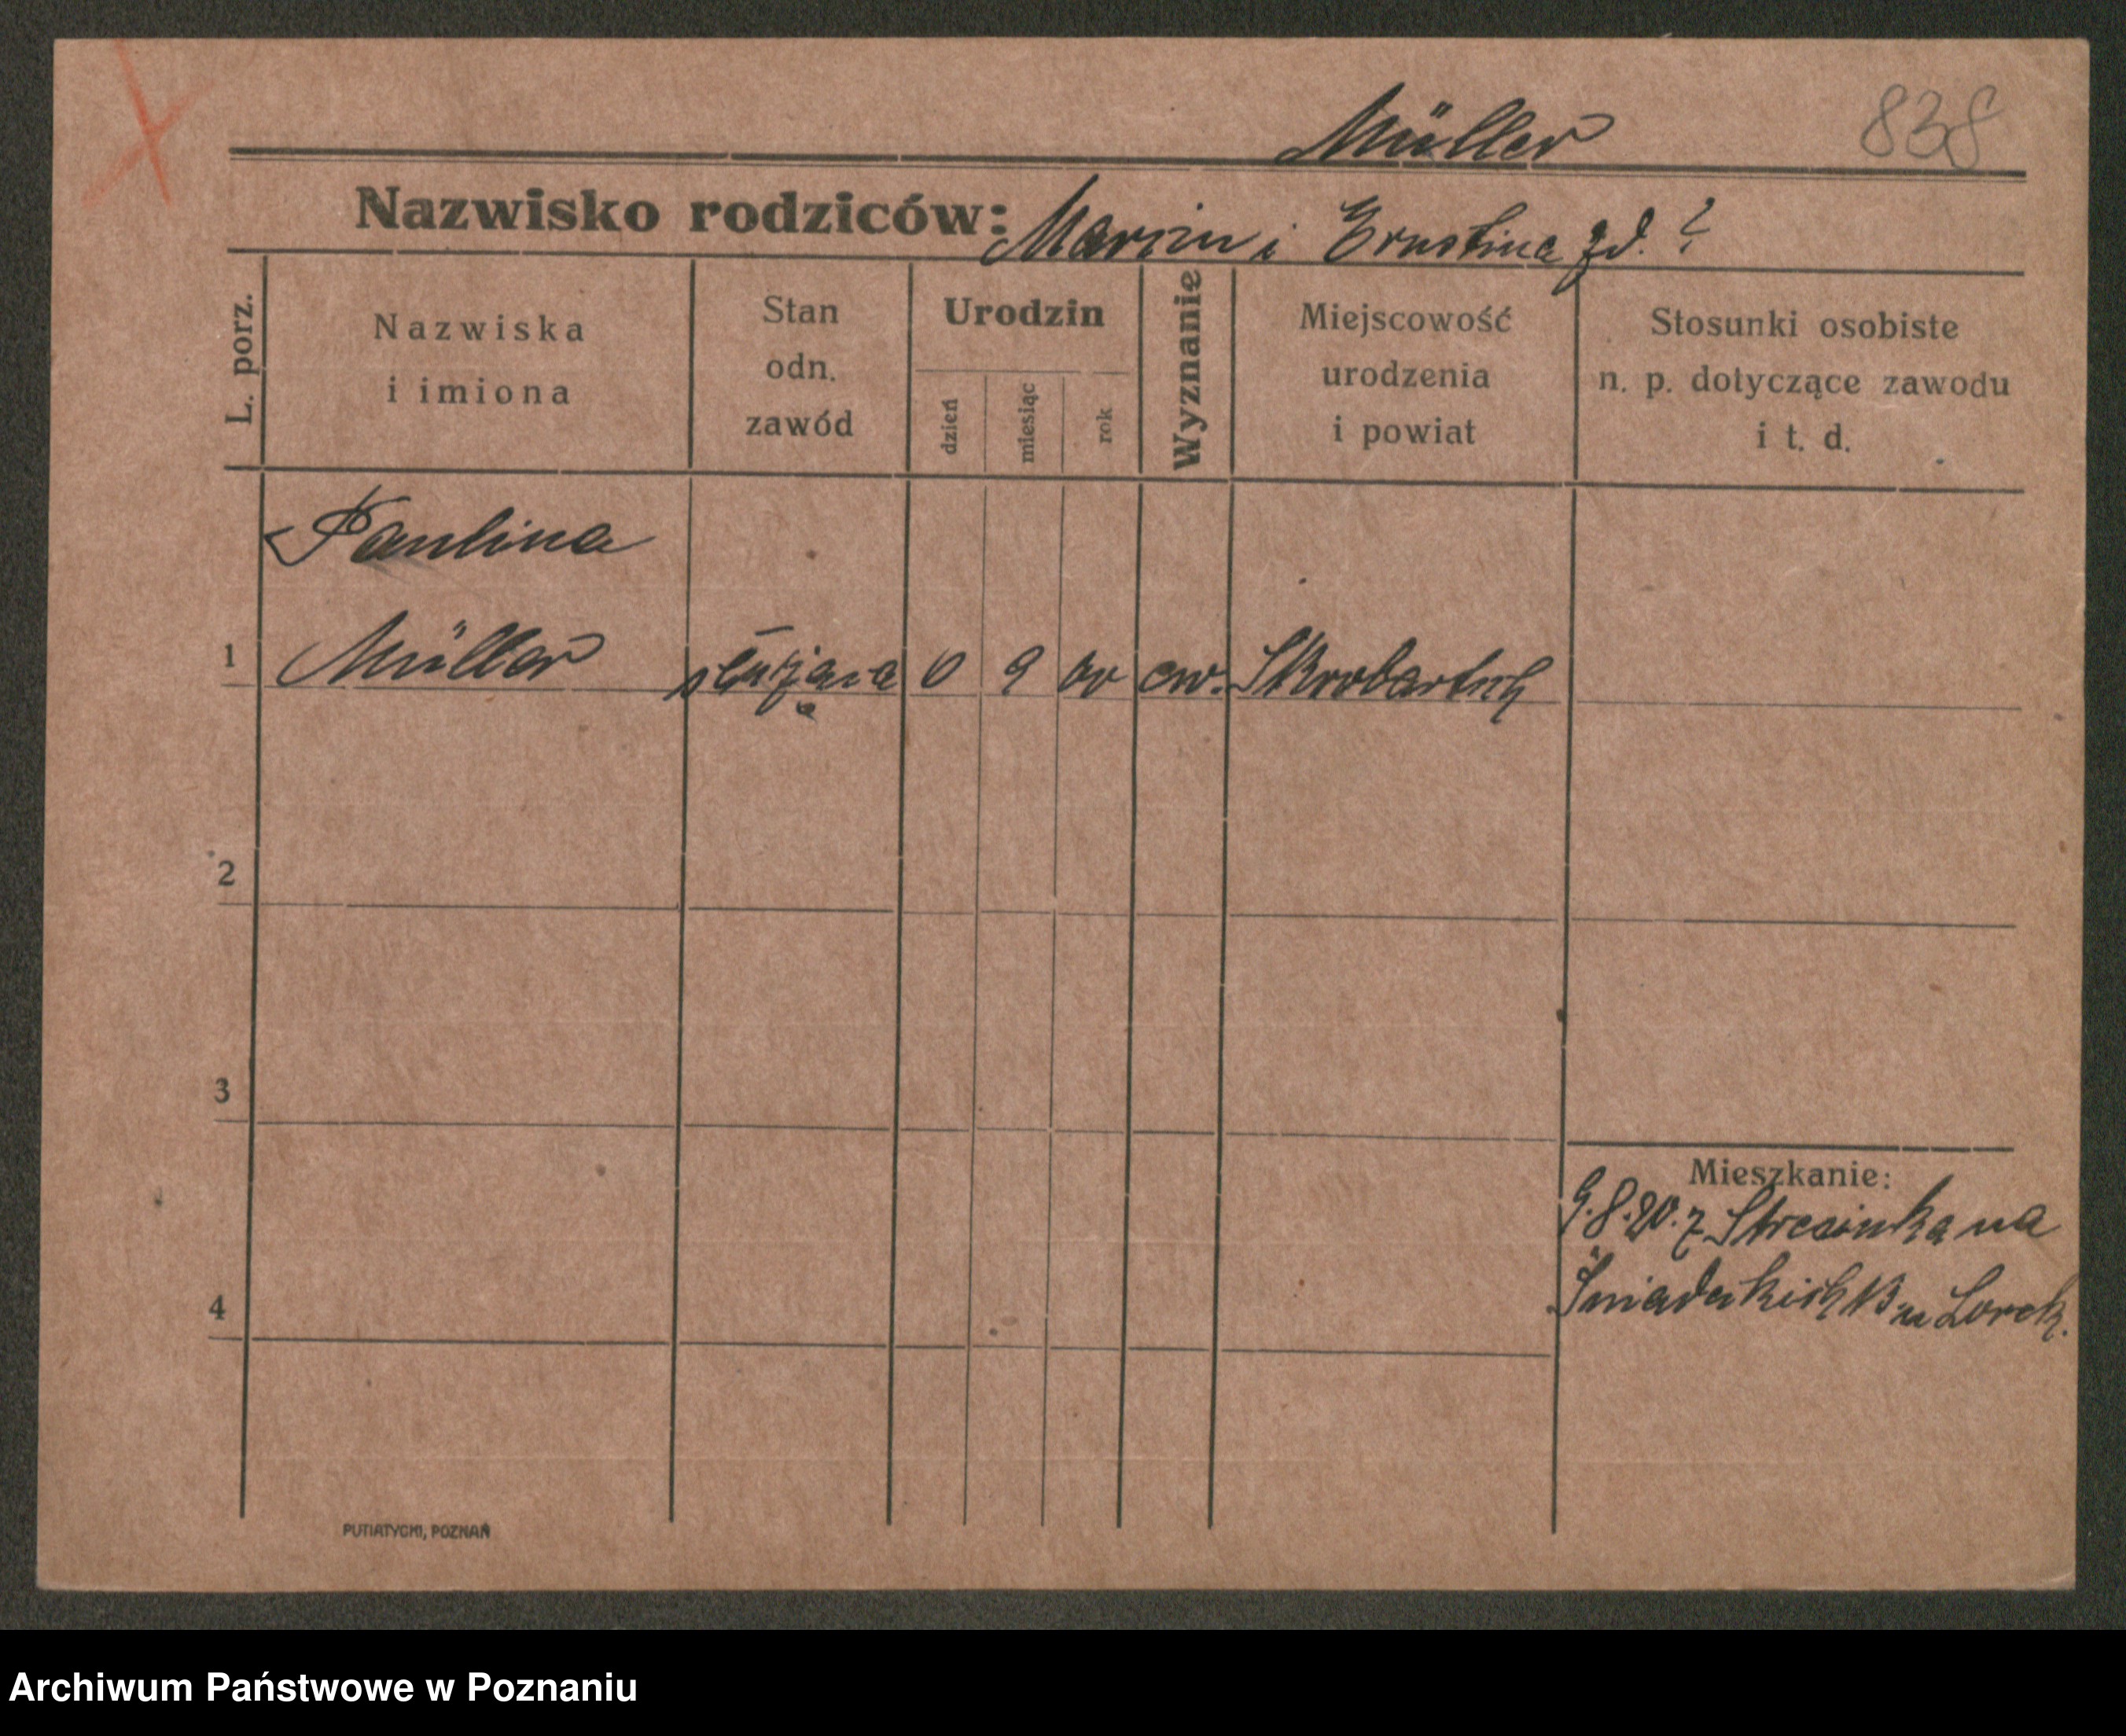 Müller 838
Nazwisko rodziców: Marcin i Ernstina zd. ?
L. porz.
Nazwiska
i imiona
Stan
odn.
zawód
Urodzin
dzień
miesiąc
rok
Wyznanie
Miejscowość
urodzenia
i powiat
Stosunki osobiste
n. p. dotyczące zawodu
i t. d.
Paulina
1 Müller służąca 0 9 ew.
2
3
Mieszkanie:
9.8.20. z na
4
Śniadeckich 13 Lorek.
PUTIATYCKI, POZNAŃ
Archiwum Państwowe w Poznaniu